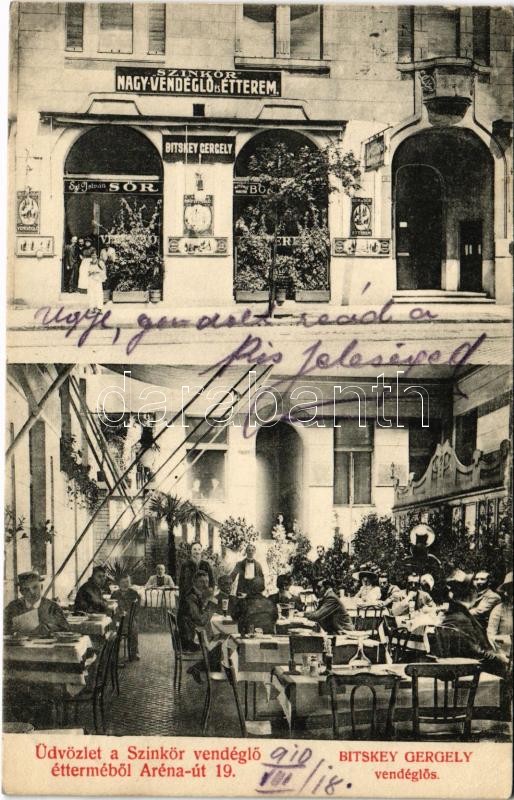 SZINKÖR
NAGY-VENDÉGLŐ és ÉTTEREM.
BITSKEY GERGELY
Szt István SÖR
BO
Ugye, gondolsz reád a
kis feleséged
darabanth
Üdvözlet a Szinkör vendéglő
étterméből Aréna-út 19.
910
VIII/18.
BITSKEY GERGELY
vendéglős.